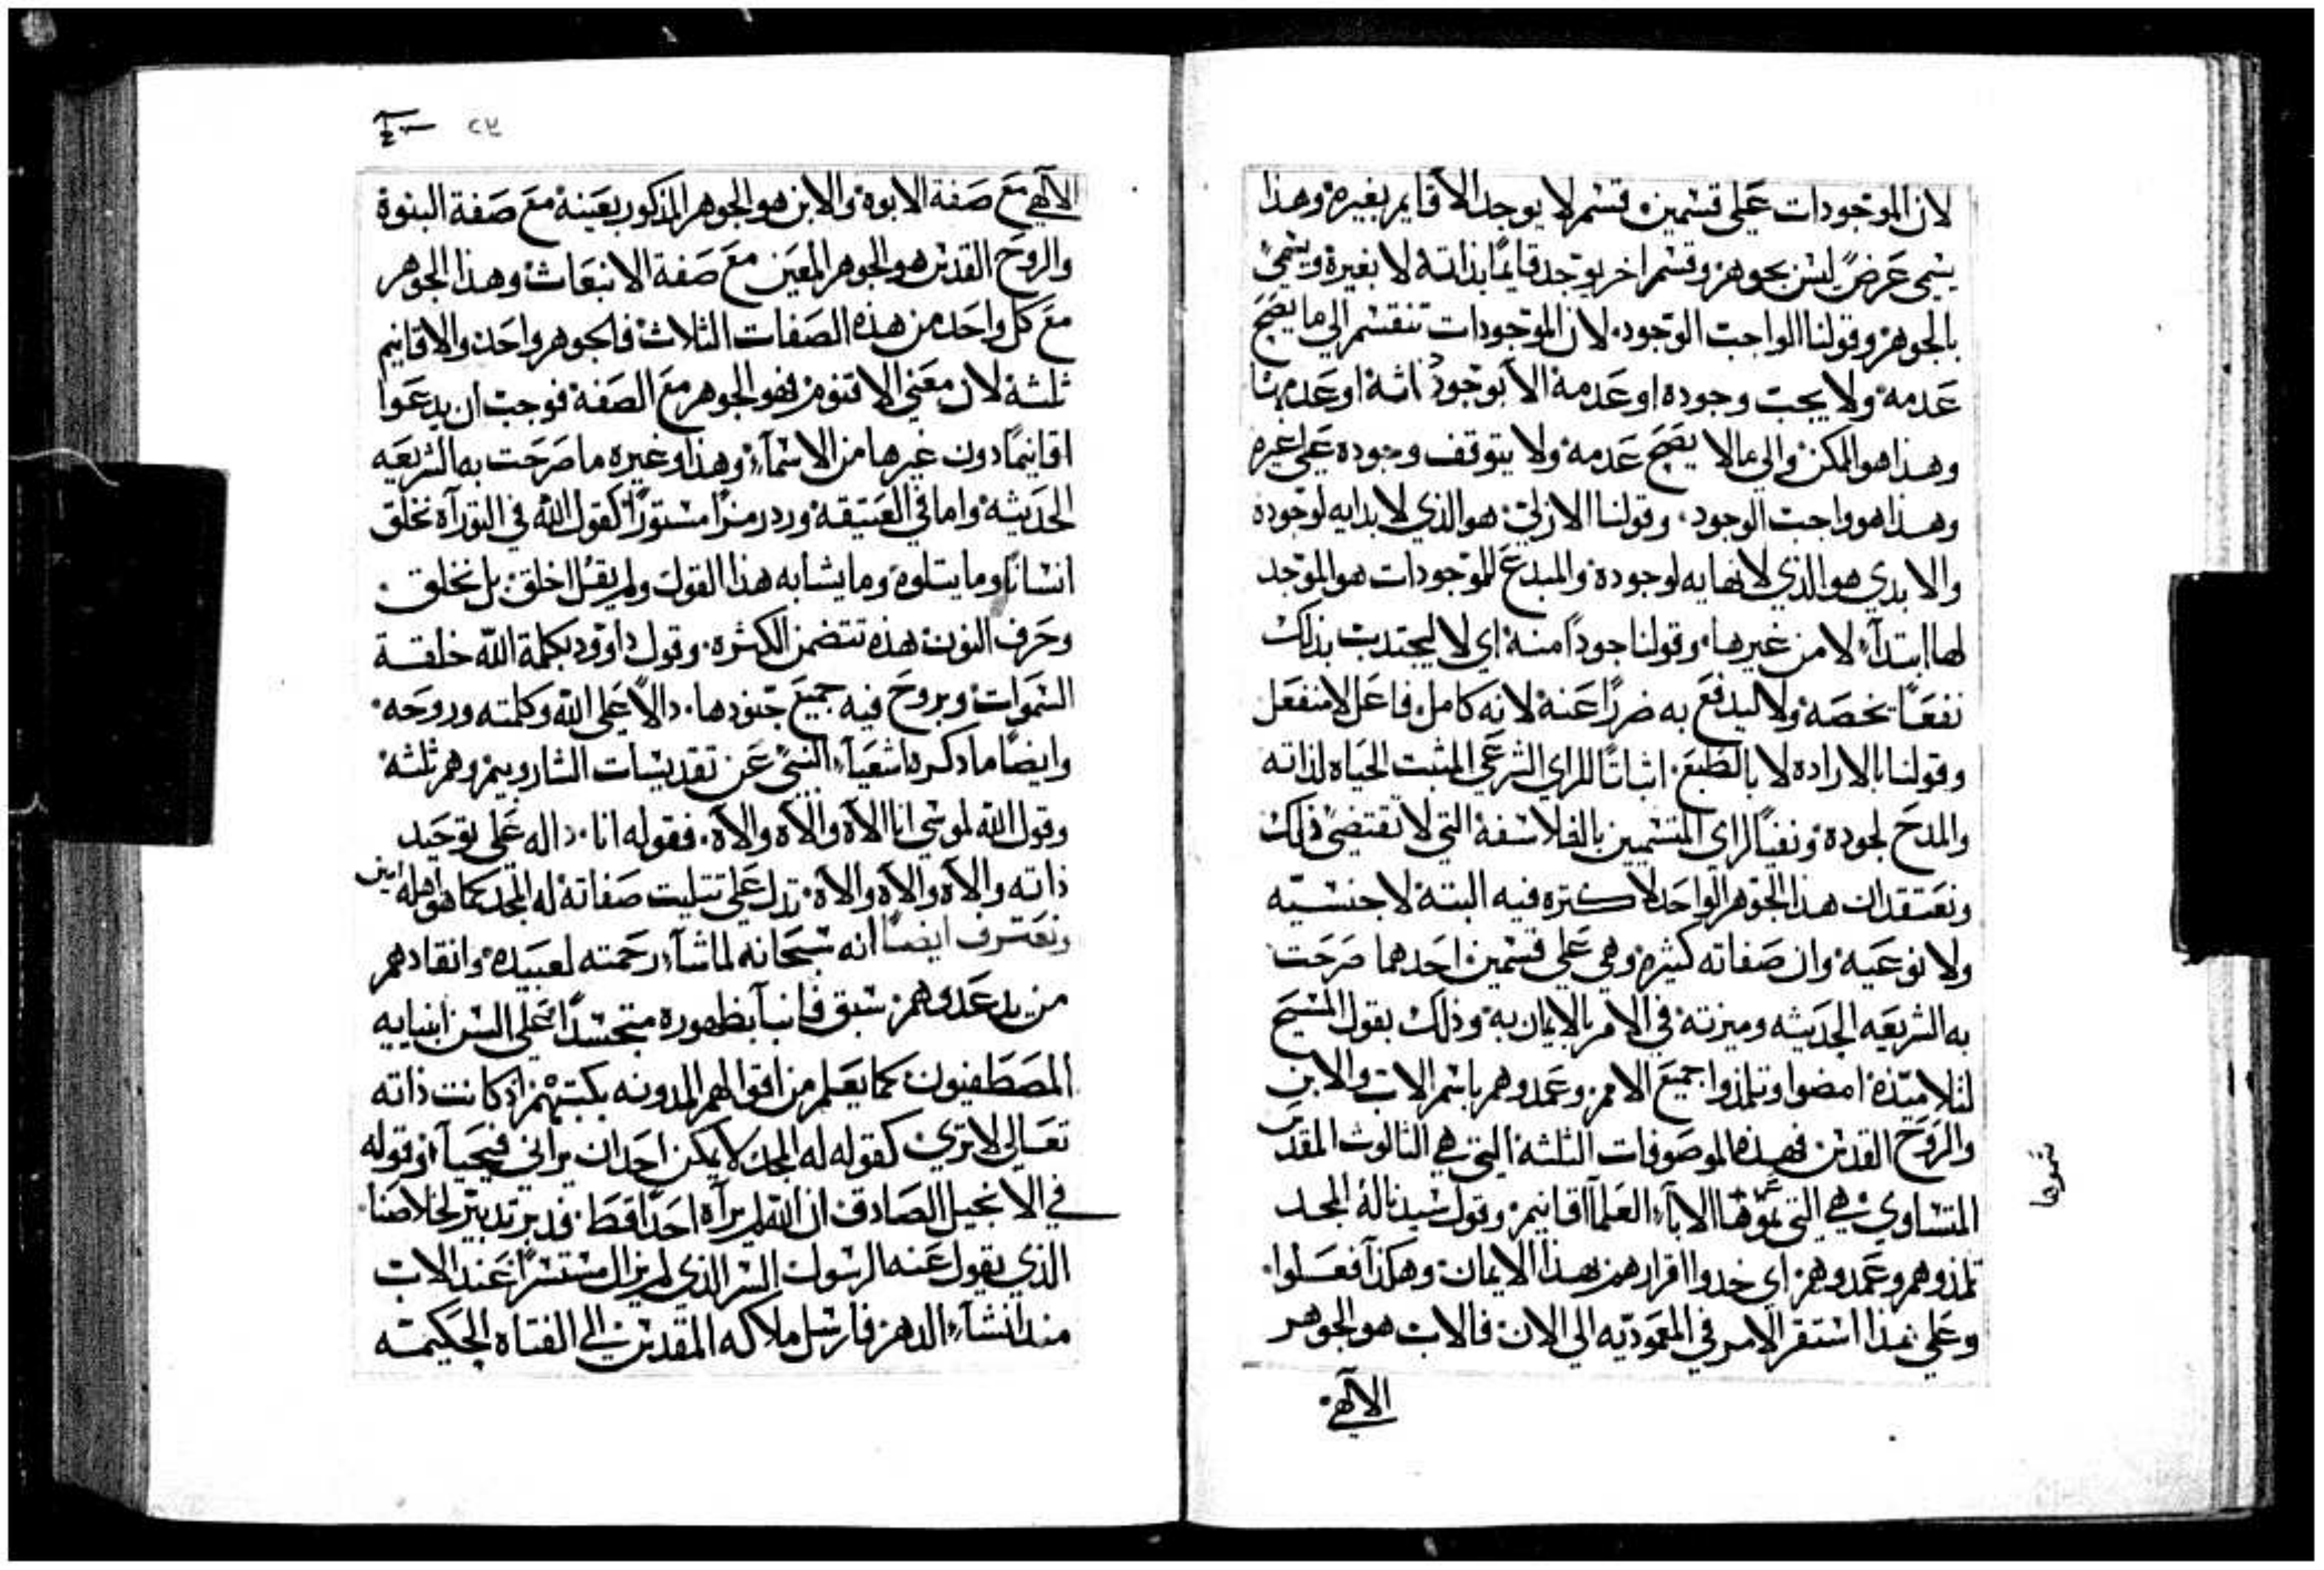 لان الموجودات على قسمين قسم لا يوجد الا قايم بغيره وهذا
يسمى عرضً ليس بجوهر وقسم اخر يوجد قايمًا بذاته لا بغيره ويسمى
بالجوهر وقولنا الواجب الوجود لان الموجودات تنقسم الي ما يصح
عدمه ولا يجب وجوده او عدمه الا بوجود او عدم
وهذا هو الممكن والي ما لا يصح عدمه ولا يتوقف وجوده علي غيره
وهذا هو واجب الوجود وقولنا الازلي هو الذي لا بدايه لوجوده
والابدي هو الذي لا نهايه لوجوده والمبدع للموجودات هو الموجد
لها ابتدآء لا من غيرها وقولنا جودًا منه اي لا ليجتدب بذلك
نفعًا يخصه ولا ليدفع به ضررًا عنه لانه كامل فاعل لا منفعل
وقولنا بالاراده لا بالطبع اثباتًا للراي الشرعي المثبت الحياه لذاته
والمدح لجوده ونفيًا لراي المتسميين بالفلاسفة التي لا تقتضي ذلك
ونعتقد ان هذا الجوهر الواحد لا كتره فيه البتة لا جنسيّه
ولا نوعيه وان صفاته كثيره وهي علي قسمين احدهما صرحت
به الشريعه الحديثه وميزته في الامر بالايمان به وذلك بقول المسيح
لتلاميّذه امضوا وتلمذوا جميع الامم وعمدوهم باسم الاب والابن
والروح القدس فهذه الموصوفات الثلثة التي هي الثالوث المقدس
المتساوي هي التي سموها الابآء العلمآ اقانيم وقول سيدنا له المجد
تلمذوهم وعمدوهم اي خدوا اقرارهم بهذا الايمان وهكذا فعلوا
وعلي هذا استقر الامر في المعموديه الي الان فالاب هو الجوهر
الالهي
سموها
٢٧
الالهي مع صفة الابوة والابن هو الجوهر المذكور بعينه مع صفة البنوة
والروح القدس هو الجوهر المعين مع صفة الانبعاث وهذا الجوهر
مع كل واحد من هذه الصفات الثلاث فالجوهر واحد والاقانيم
ثلثة لان معني الاقنوم فهو الجوهر مع الصفة فوجب ان يدعوا
اقانيمًا دون غيرها من الاسمآء وهذا وغيره ما صرحت به الشريعه
الحديثه واما في العتيقة ورد رمزًا مستورًا كقول الله في التورآة نخلق
انسانًا وما يتلوه وما يشابه هذا القول ولم يقل اخلق بل نخلق
وحرف النون هذه تتضمن الكثره وقول داوود بكلمة الله خلقة
السموات وبروح فيه جميع جنودها دالاً علي الله وكلمته وروحه
وايضًا ما دكره اشعيآء النبي عن تقديسات الشاروبيم وهم ثلثة
وقول الله لموسي انا الاه والاه والاه فقوله انا داله علي توحيد
ذاته والاه والاه والاه تدل علي تتليت صفاته له المجد كما هو اهله امين
ونعترف ايضًا انه سبحانه لما شآء رحمته لعبيده وانقادهم
من يد عدوهم سبق فانبآ بظهوره متجسدًا علي السن انبيايه
المصطفيون كما يعلم من اقوالهم المدونه بكتبهم اذ كانت ذاته
تعالي لا تري كقوله له المجد لا يمكن احد ان يراني فيحيآ وقوله
في الانجيل الصادق ان الله لم يرآه احدًا قط فدبر تدبير لخلاصنا
الذي يقول عنه الرسول السر الذي لم يزل مستترًا عند الاب
مند انشآء الدهر فارسل ملاكه المقدس الي الفتاه الحكيمه